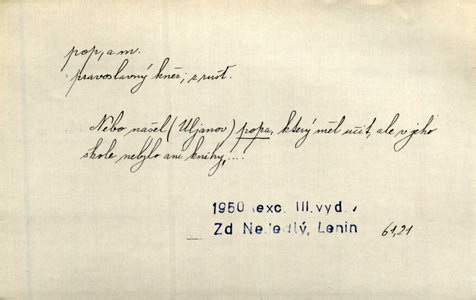 pop, a m.
pravoslavný kněz, s rušt.
Nebo našel (Uljanov) popa, který měl učit, ale v jeho
škole nebylo ani knihy, ...
1950 exc. III. vyd.
Zd Nejedlý, Lenin 61,21